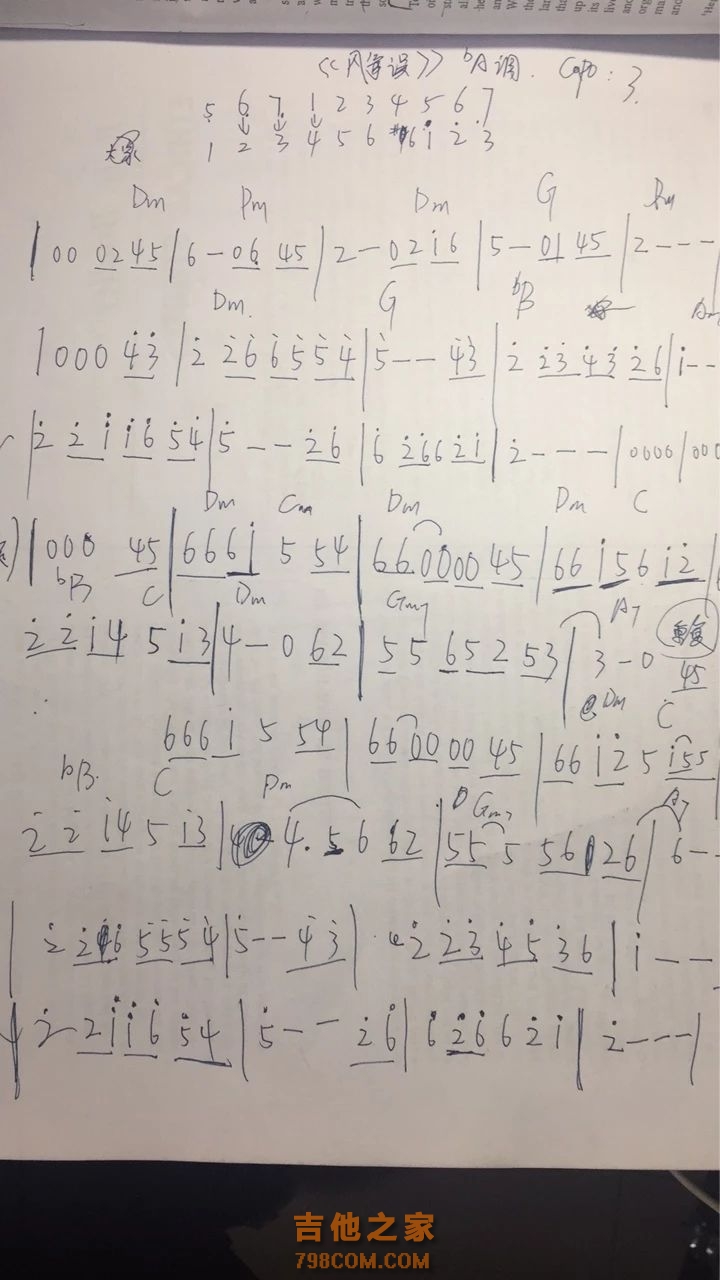 《风筝误》 bA调. Capo: 3.
5 6 7 1 2 3 4 5 6 7
1 2 3 4 5 6 i 2 3
Dm Dm G
| 00 0245 | 6 - 06 45 | 2 - 02i6 | 5 - 01 45 | 2 - - -
Dm. G bB Am
| 000 43 | 2 26 65 54 | 5 - - 43 | 2 23 43 26 | i - -
| 2 2i i6 54 | 5 - - 26 | 6 266 2i | 2 - - - | 0000 | 000
Dm Dm Dm C
| 000 45 | 666i 5 54 | 66.0000 45 | 66 i56 i2 |
bB C Dm Gm7 A7 重复
22i4 5 i3 | 4 - 0 62 | 55 652 53 | 3 - 0 45
Dm C
666i 5 54 | 66 00 00 45 | 66 i2 5 i55
bB. C Dm Gm7 A7
2 2 i4 5 i3 | 4. 56 62 | 55 5 56 26 | 6 - -
| 2 246 5554 | 5 - - 43 | 2 23 45 36 | i - -
2 - 2i i6 54 | 5 - - 26 | 6 26 6 2i | 2 - - - |
吉他之家
798COM.COM